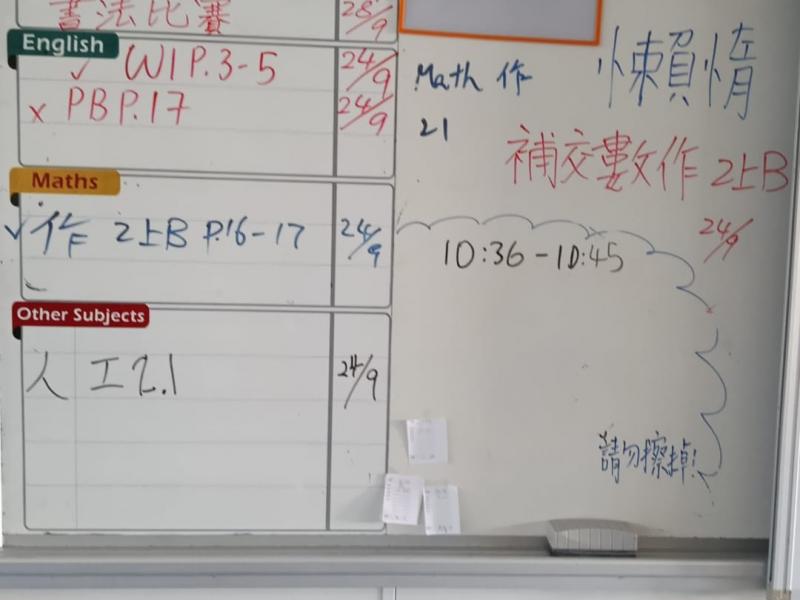 書法比賽 28/9
English
✓ W1 P.3-5 24/9
x PB P.17 24/9
Maths
✓ 作 2上B P.16-17 24/9
Other Subjects
人 工 2.1 24/9
Math 作
21
懶惰
補交數作 2上B
24/9
10:36-10:45
請勿擦掉!